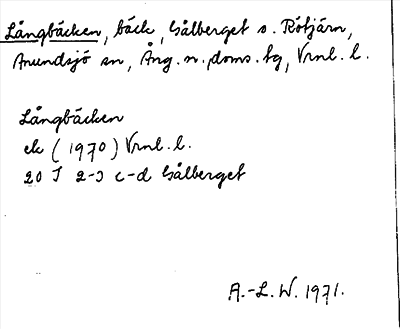 Långbäcken, bäck, Gålberget s. Rötjärn,
Anundsjö sn, Ång. n. doms. tg, Vrnl. l.
Långbäcken
ek (1970) Vrnl. l.
20 J 2-3 c-d Gålberget
A.-L. W. 1971.